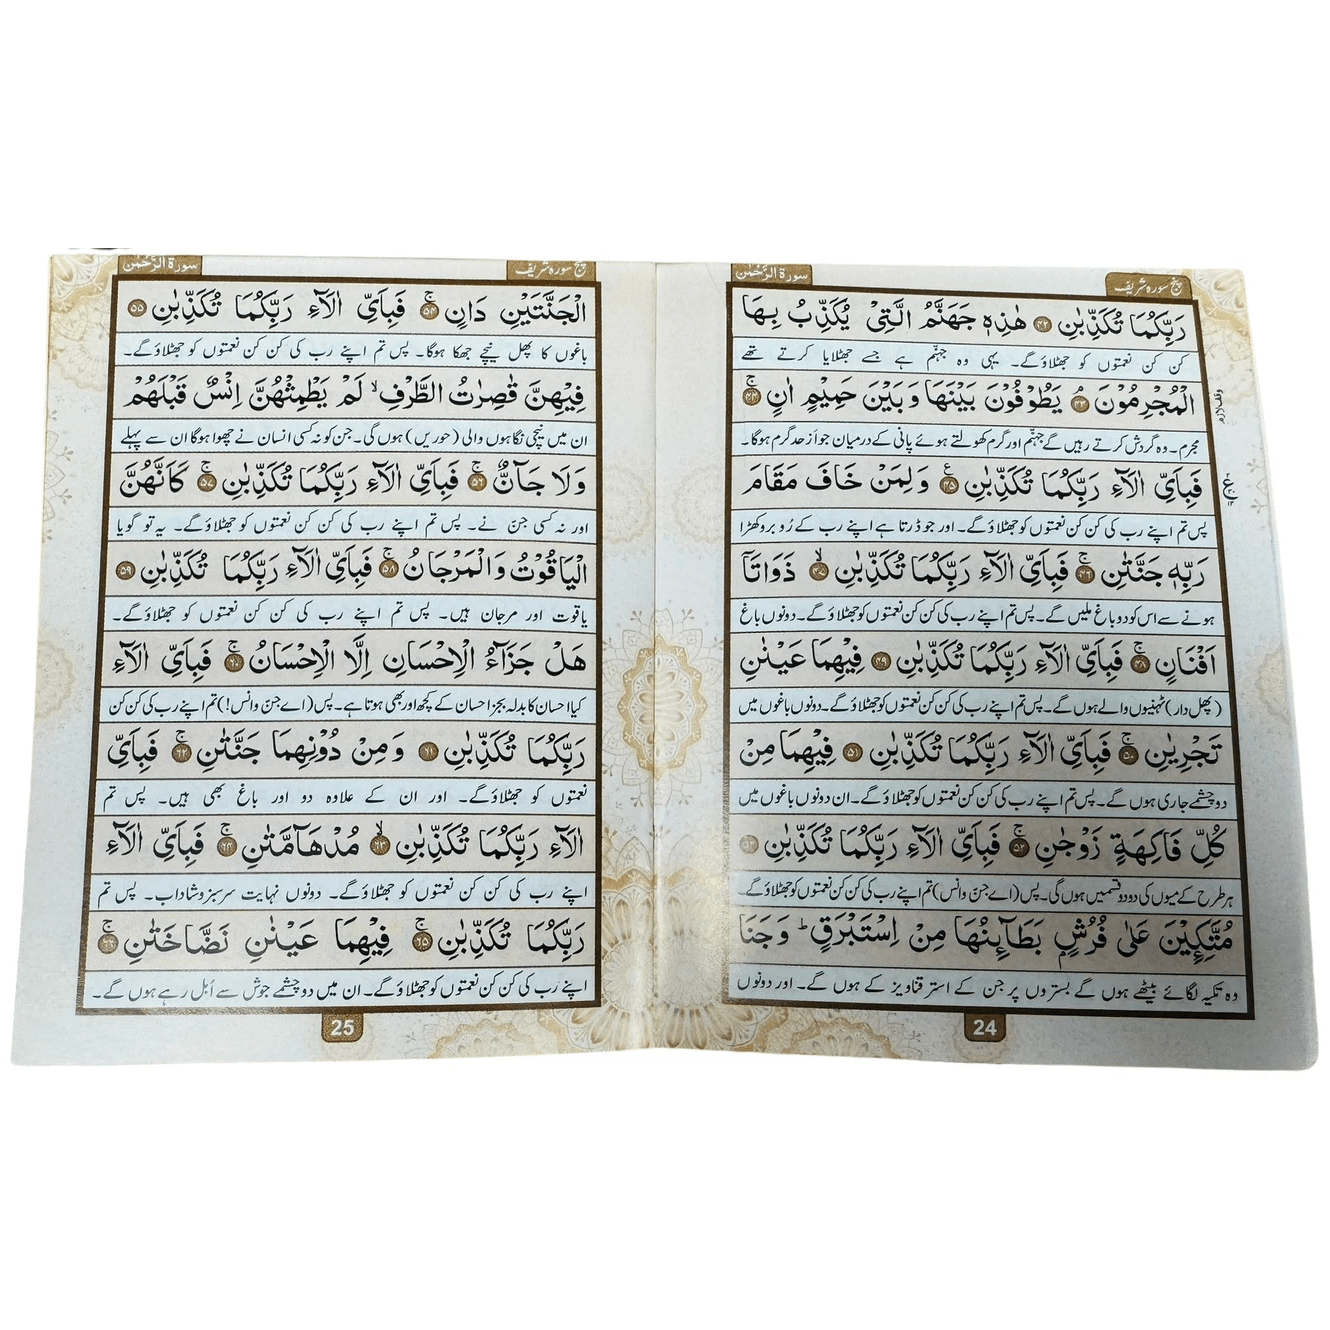 پنج سورہ شریف
سورة الرَّحْمٰن
رَبِّكُمَا تُكَذِّبٰنِ ﴿۴۲﴾ هٰذِهٖ جَهَنَّمُ الَّتِیْ یُكَذِّبُ بِهَا
کن کن نعمتوں کو جھٹلاؤگے۔ یہی وہ جہنّم ہے جسے جھٹلایا کرتے تھے
الْمُجْرِمُوْنَ ﴿۴۳﴾ یَطُوْفُوْنَ بَیْنَهَا وَ بَیْنَ حَمِیْمٍ اٰنٍ ﴿۴۴﴾ۚ
وقف لازم
مجرم۔ وہ گردش کرتے رہیں گے جہنّم اور گرم کھولتے ہوئے پانی کے درمیان جو از حد گرم ہوگا۔
فَبِاَیِّ اٰلَآءِ رَبِّكُمَا تُكَذِّبٰنِ ﴿۴۵﴾ وَ لِمَنْ خَافَ مَقَامَ
پس تم اپنے رب کی کن کن نعمتوں کو جھٹلاؤگے۔ اور جو ڈرتا ہے اپنے رب کے رُو برو کھڑا
رَبِّهٖ جَنَّتٰنِ ﴿۴۶﴾ۚ فَبِاَیِّ اٰلَآءِ رَبِّكُمَا تُكَذِّبٰنِ ﴿۴۷﴾ۙ ذَوَاتَاۤ
ہونے سے اس کو دو باغ ملیں گے۔ پس تم اپنے رب کی کن کن نعمتوں کو جھٹلاؤ گے۔ دونوں باغ
اَفْنَانٍ ﴿۴۸﴾ۚ فَبِاَیِّ اٰلَآءِ رَبِّكُمَا تُكَذِّبٰنِ ﴿۴۹﴾ فِیْهِمَا عَیْنٰنِ
(پھل دار) ٹہنیوں والے ہوں گے۔ پس تم اپنے رب کی کن کن نعمتوں کو جھٹلاؤگے۔ دونوں باغوں میں
تَجْرِیٰنِ ﴿۵۰﴾ۚ فَبِاَیِّ اٰلَآءِ رَبِّكُمَا تُكَذِّبٰنِ ﴿۵۱﴾ فِیْهِمَا مِنْ
دو چشمے جاری ہوں گے۔ پس تم اپنے رب کی کن کن نعمتوں کو جھٹلاؤگے۔ ان دونوں باغوں میں
كُلِّ فَاكِهَةٍ زَوْجٰنِ ﴿۵۲﴾ۚ فَبِاَیِّ اٰلَآءِ رَبِّكُمَا تُكَذِّبٰنِ ﴿۵۳﴾
ہر طرح کے میوں کی دو دو قسمیں ہوں گی۔ پس (اے جنّ وانس) تم اپنے رب کی کن کن نعمتوں کو جھٹلاؤگے
مُتَّكِـِٕیْنَ عَلٰی فُرُشٍۭ بَطَآىِٕنُهَا مِنْ اِسْتَبْرَقٍ ؕ وَ جَنَا
وہ تکیہ لگائے بیٹھے ہوں گے بستروں پر جن کے استر قنادیز کے ہوں گے۔ اور دونوں
24
پنج سورہ شریف
سورة الرَّحْمٰن
الْجَنَّتَیْنِ دَانٍ ﴿۵۴﴾ۚ فَبِاَیِّ اٰلَآءِ رَبِّكُمَا تُكَذِّبٰنِ ﴿۵۵﴾
باغوں کا پھل نیچے جھکا ہوگا۔ پس تم اپنے رب کی کن کن نعمتوں کو جھٹلاؤ گے۔
فِیْهِنَّ قٰصِرٰتُ الطَّرْفِ ۙ لَمْ یَطْمِثْهُنَّ اِنْسٌ قَبْلَهُمْ
ان میں نیچی نگاہوں والی (حوریں) ہوں گی۔ جن کو نہ کسی انسان نے چھوا ہوگا ان سے پہلے
وَ لَا جَآنٌّ ﴿۵۶﴾ۚ فَبِاَیِّ اٰلَآءِ رَبِّكُمَا تُكَذِّبٰنِ ﴿۵۷﴾ۚ كَاَنَّهُنَّ
اور نہ کسی جنّ نے۔ پس تم اپنے رب کی کن کن نعمتوں کو جھٹلاؤ گے۔ یہ تو گویا
الْیَاقُوْتُ وَ الْمَرْجَانُ ﴿۵۸﴾ۚ فَبِاَیِّ اٰلَآءِ رَبِّكُمَا تُكَذِّبٰنِ ﴿۵۹﴾
یاقوت اور مرجان ہیں۔ پس تم اپنے رب کی کن کن نعمتوں کو جھٹلاؤگے۔
هَلْ جَزَآءُ الْاِحْسَانِ اِلَّا الْاِحْسَانُ ﴿۶۰﴾ۚ فَبِاَیِّ اٰلَآءِ
کیا احسان کا بدلہ بجز احسان کے کچھ اور بھی ہوتا ہے۔ پس (اے جنّ وانس!) تم اپنے رب کی کن کن
رَبِّكُمَا تُكَذِّبٰنِ ﴿۶۱﴾ وَ مِنْ دُوْنِهِمَا جَنَّتٰنِ ﴿۶۲﴾ۚ فَبِاَیِّ
نعمتوں کو جھٹلاؤگے۔ اور ان کے علاوہ دو اور باغ بھی ہیں۔ پس تم
اٰلَآءِ رَبِّكُمَا تُكَذِّبٰنِ ﴿۶۳﴾ۙ مُدْهَآمَّتٰنِ ﴿۶۴﴾ۚ فَبِاَیِّ اٰلَآءِ
اپنے رب کی کن کن نعمتوں کو جھٹلاؤگے۔ دونوں نہایت سرسبز و شاداب۔ پس تم
رَبِّكُمَا تُكَذِّبٰنِ ﴿۶۵﴾ۚ فِیْهِمَا عَیْنٰنِ نَضَّاخَتٰنِ ﴿۶۶﴾ۚ
اپنے رب کی کن کن نعمتوں کو جھٹلاؤ گے۔ ان میں دو چشمے جوش سے اُبل رہے ہوں گے۔
25